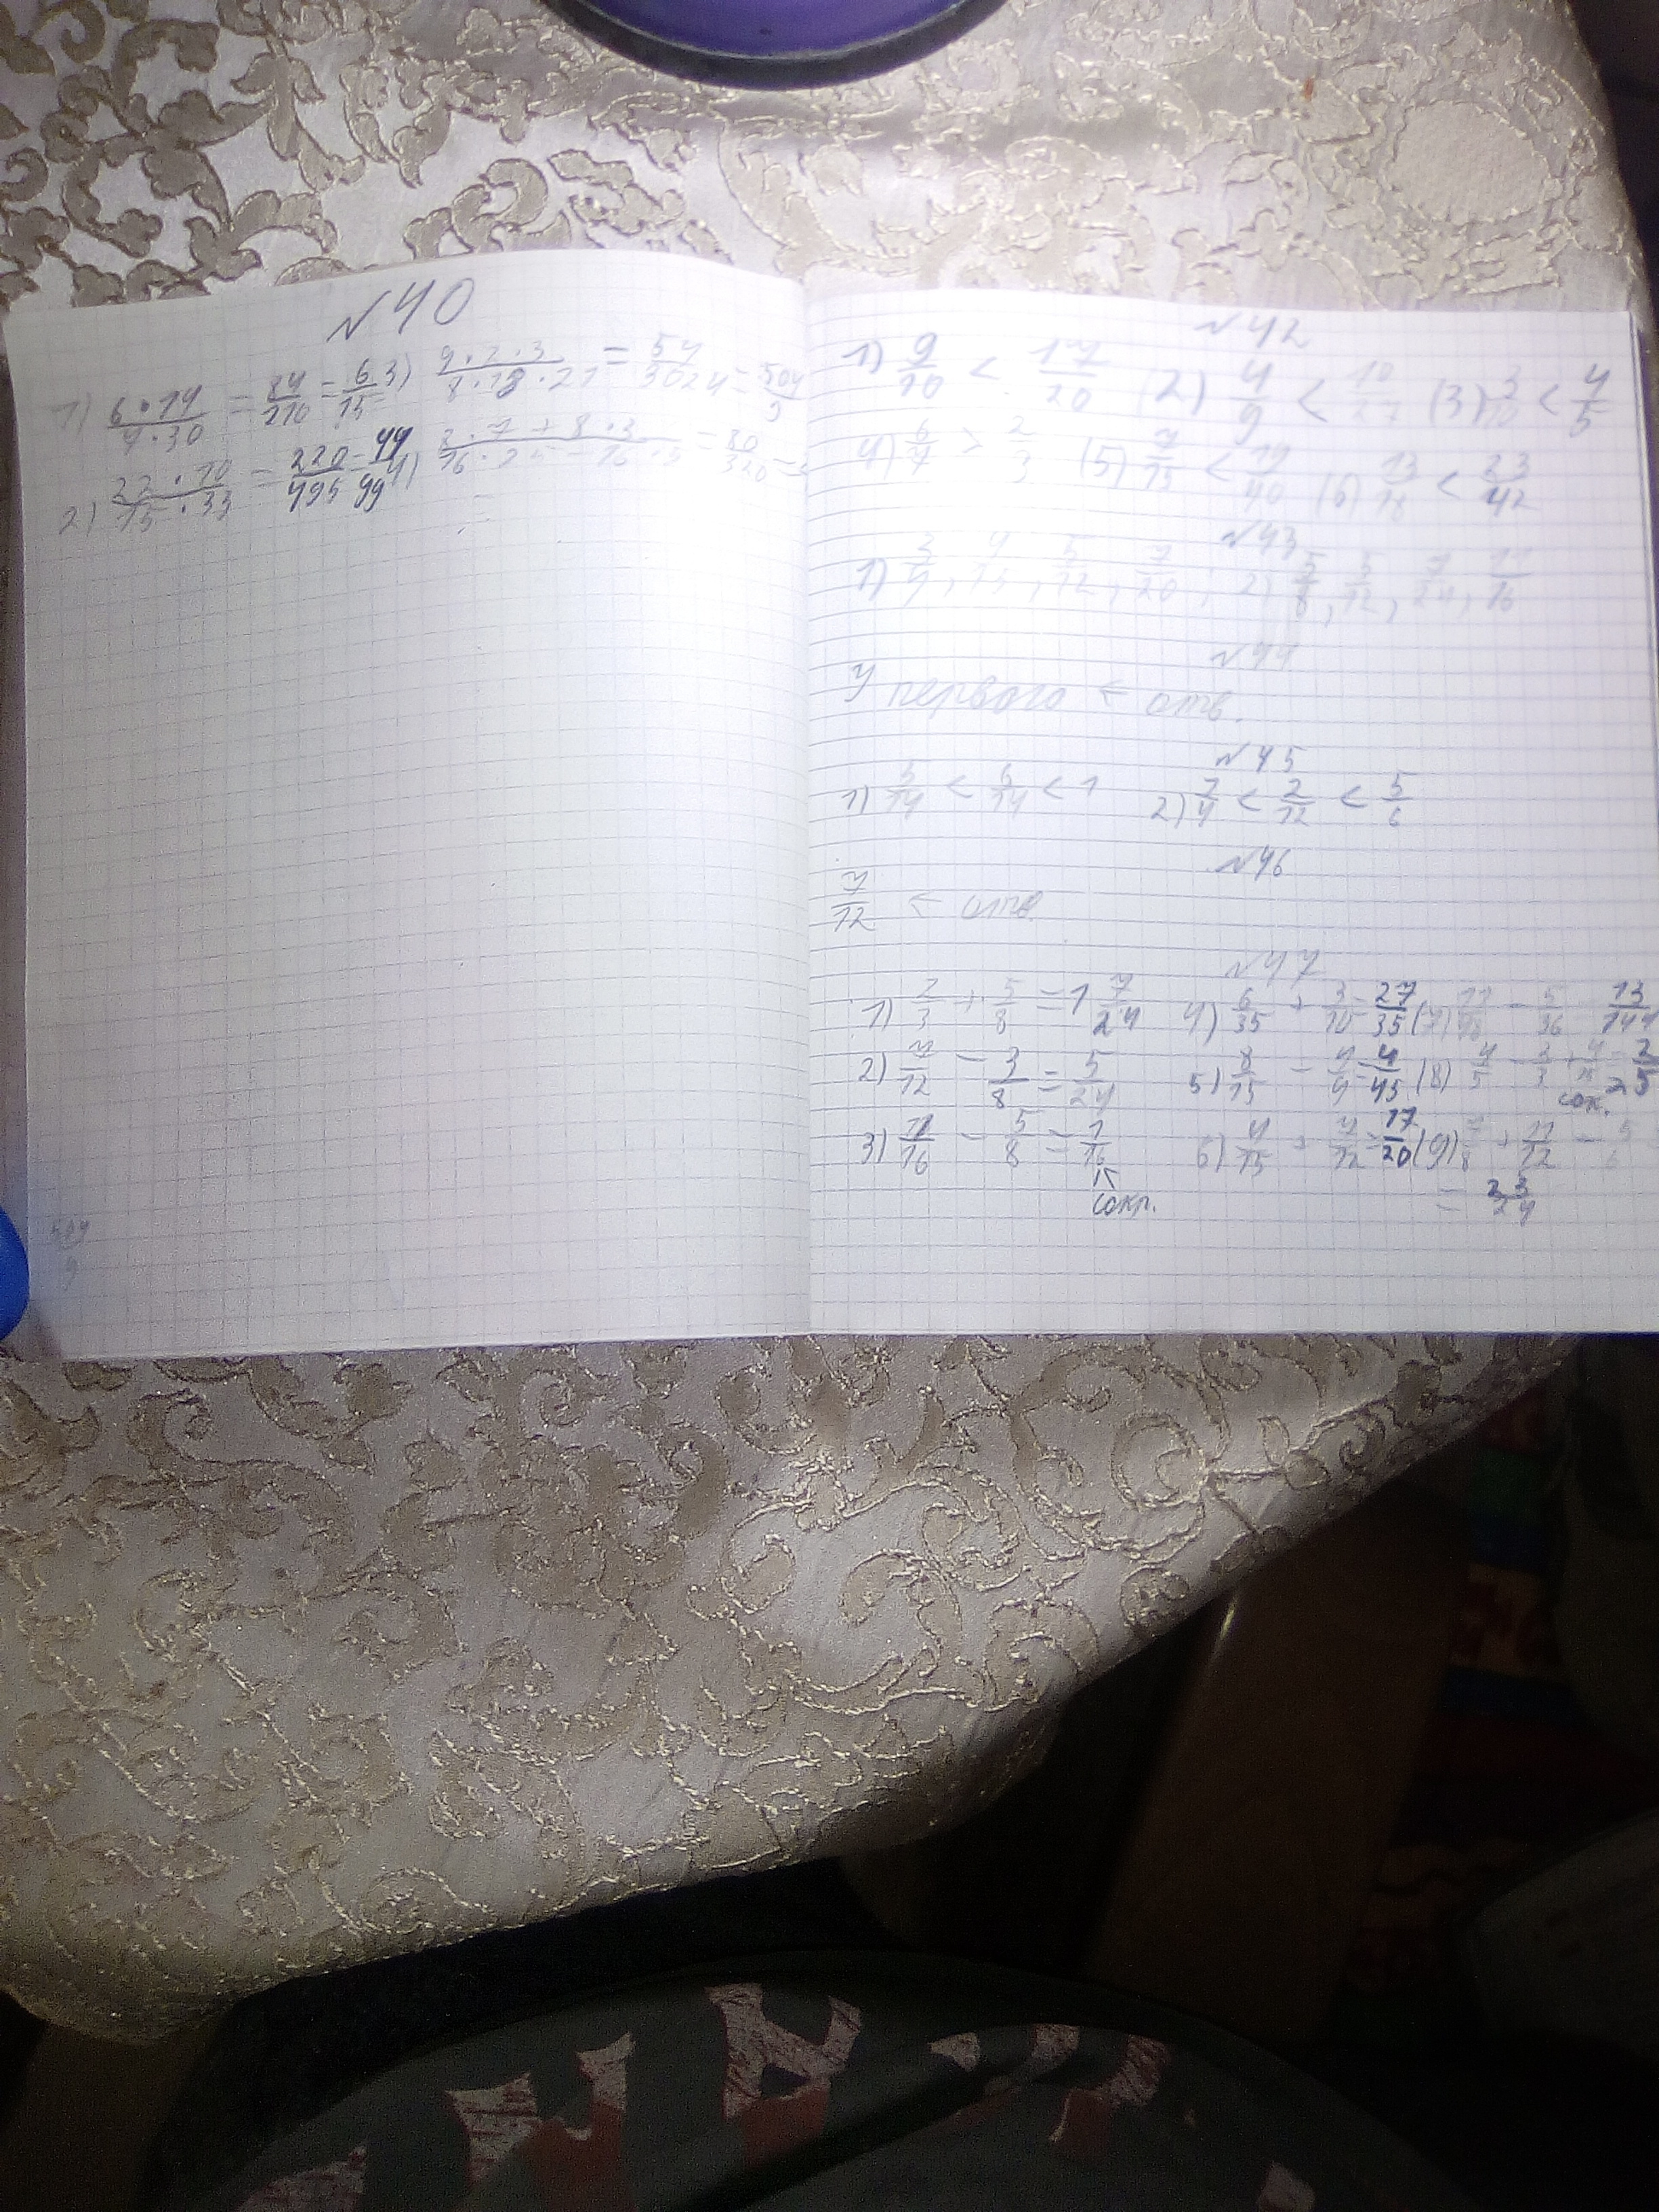 №40
1) 6·14/7·30 = 84/210 = 6/15
3) 9·2·3/8·18·21 = 54/3024 = 504/9
2) 22·10/15·33 = 220/495 = 44/99
№42
1) 9/10 < 17/20 (2) 4/9 < 10/27 (3) 3/10 < 4/5
4) 6/7 > 2/3 (5) 7/15 < 19/40 (6) 13/18 < 23/42
№43
1) 3/4, 4/15, 5/12, 7/20; 2) 5/8, 5/12, 7/24, 11/16
№44
У первого ← отв.
№45
1) 5/14 < 6/14 < 1 2) 1/4 < 2/12 < 5/6
№46
7/12 ← отв.
№47
1) 2/3 + 5/8 = 1 7/24 4) 6/35 + 3/10 = 27/35 (7) 11/48 - 5/36 13/144
2) 7/12 - 3/8 = 5/24 5) 8/15 - 4/9 = 4/45 (8) 4/5 - 2/3 + 4/15 = 2/5
сок.
3) 11/16 - 5/8 = 1/16 6) 4/15 + 7/12 = 17/20 (9) 7/8 + 11/12 - 5/6
сокр.
= 23/24
504/9